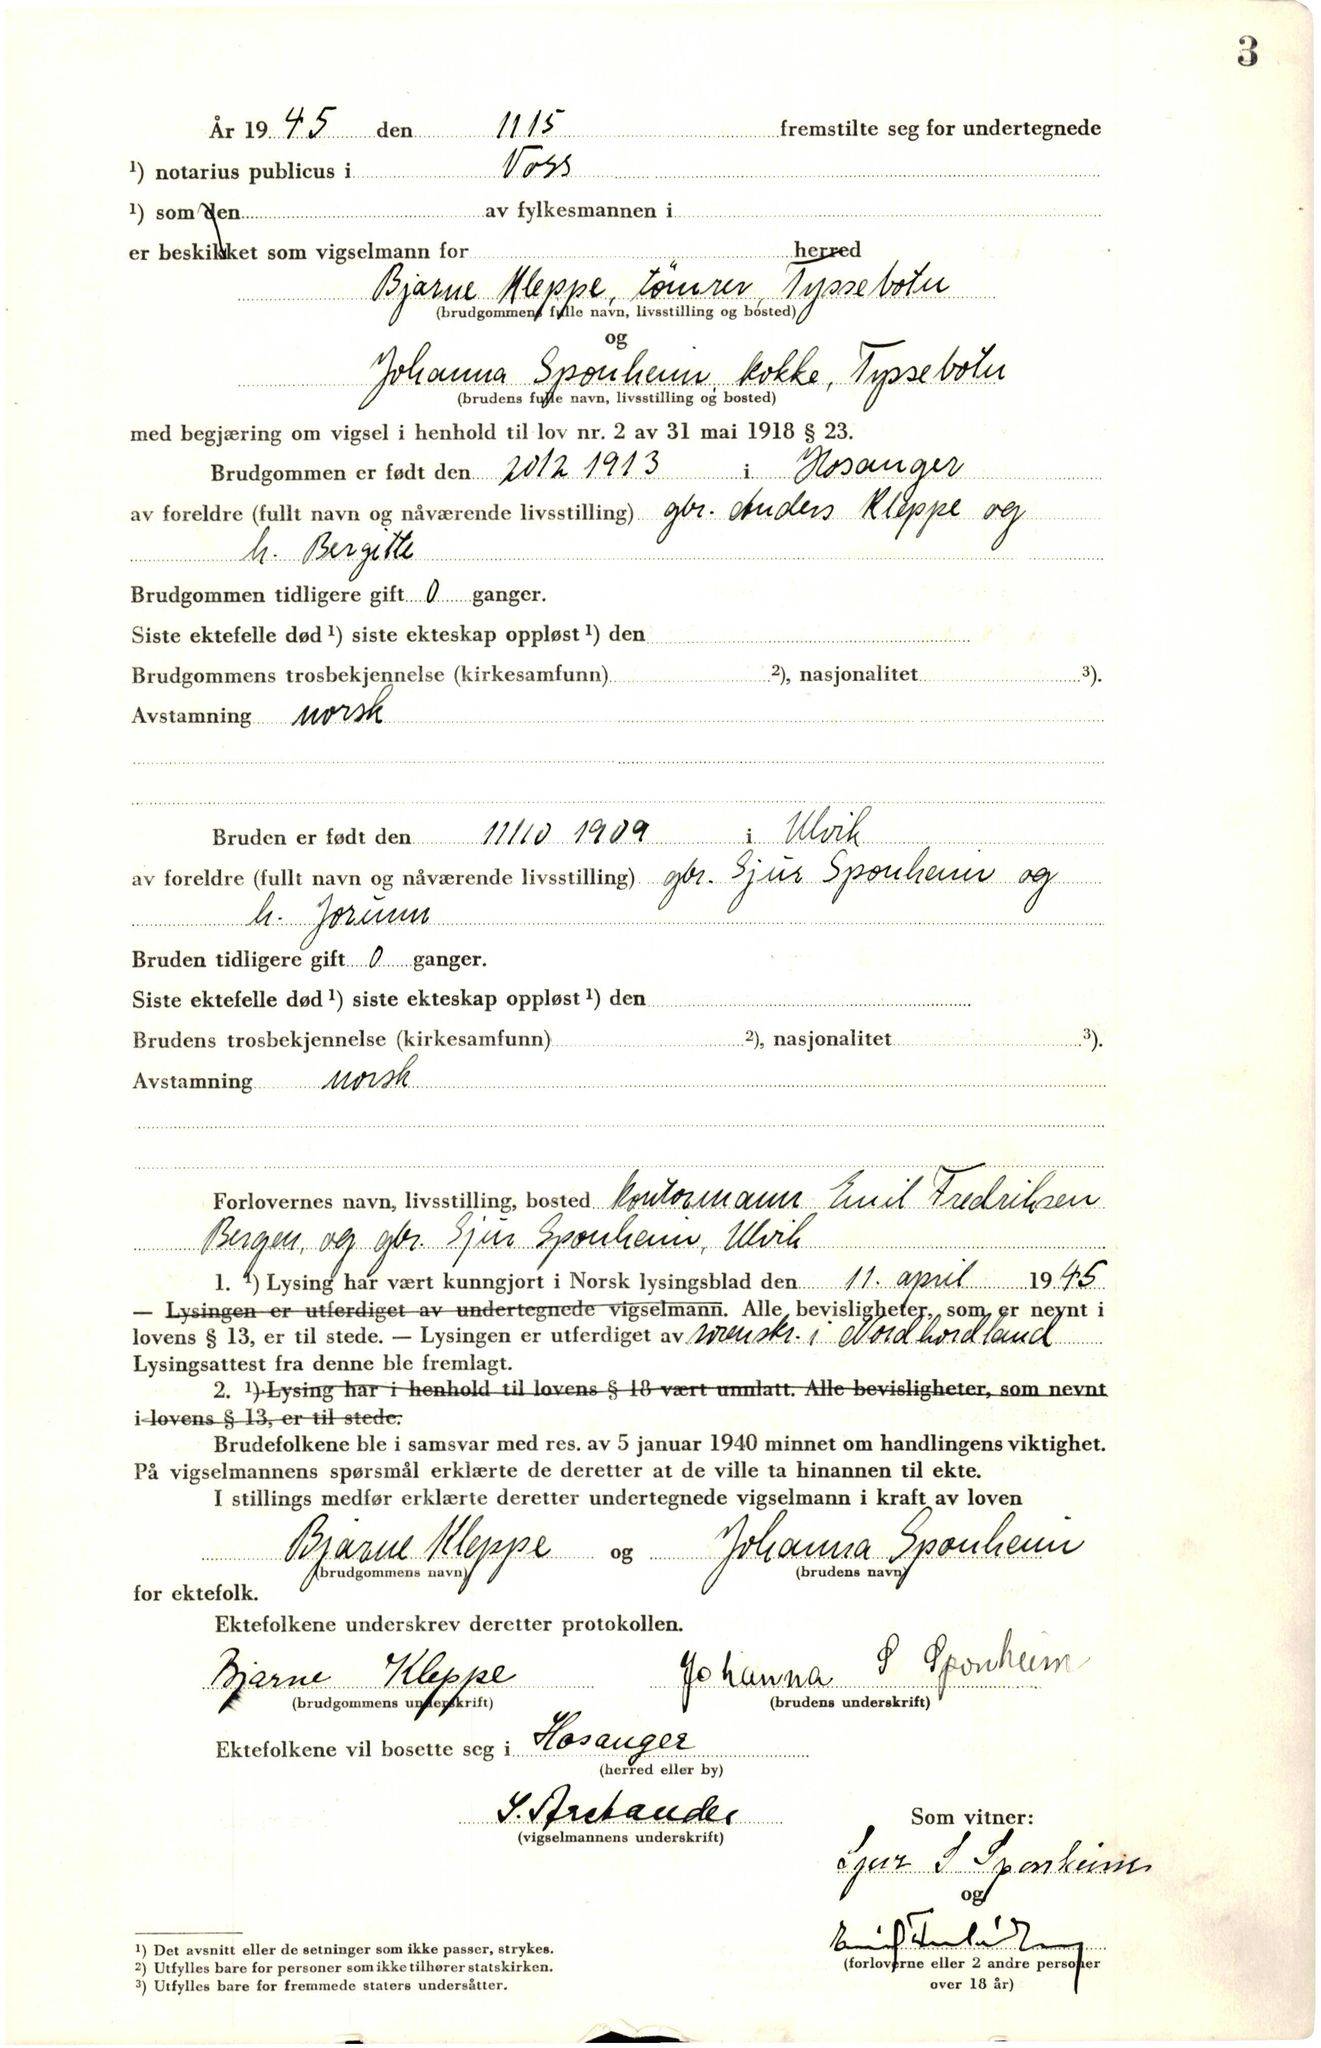 3
År 1945 den 11/5 fremstilte seg for undertegnede
¹) notarius publicus i Voss
¹) som den av fylkesmannen i
er beskikket som vigselmann for herred
Bjarne Kleppe, tömrer, Tyssebotn
(brudgommens fulle navn, livsstilling og bosted)
og
Johanna Sponheim, kokke, Tyssebotn
(brudens fulle navn, livsstilling og bosted)
med begjæring om vigsel i henhold til lov nr. 2 av 31 mai 1918 § 23.
Brudgommen er født den 20/2 1913 i Hosanger
av foreldre (fullt navn og nåværende livsstilling) gbr. Anders Kleppe og
h. Bergitte
Brudgommen tidligere gift 0 ganger.
Siste ektefelle død ¹) siste ekteskap oppløst ¹) den
Brudgommens trosbekjennelse (kirkesamfunn) ²), nasjonalitet ³).
Avstamning norsk
Bruden er født den 11/10 1909 i Ulvik
av foreldre (fullt navn og nåværende livsstilling) gbr. Sjur Sponheim og
h. Jorunn
Bruden tidligere gift 0 ganger.
Siste ektefelle død ¹) siste ekteskap oppløst ¹) den
Brudens trosbekjennelse (kirkesamfunn) ²), nasjonalitet ³).
Avstamning norsk
Forlovernes navn, livsstilling, bosted kontormann Emil Fredriksen
Bergen, og gbr. Sjur Sponheim, Ulvik
1. ¹) Lysing har vært kunngjort i Norsk lysingsblad den 11. april 1945
— Lysingen er utferdiget av undertegnede vigselmann. Alle bevisligheter, som er nevnt i
lovens § 13, er til stede. — Lysingen er utferdiget av sorenskr. i Nordhordland
Lysingsattest fra denne ble fremlagt.
2. ¹) Lysing har i henhold til lovens § 18 vært unnlatt. Alle bevisligheter, som nevnt
i lovens § 13, er til stede.
Brudefolkene ble i samsvar med res. av 5 januar 1940 minnet om handlingens viktighet.
På vigselmannens spørsmål erklærte de deretter at de ville ta hinannen til ekte.
I stillings medfør erklærte deretter undertegnede vigselmann i kraft av loven
Bjarne Kleppe og Johanna Sponheim
(brudgommens navn) (brudens navn)
for ektefolk.
Ektefolkene underskrev deretter protokollen.
Bjarne Kleppe Johanna S Sponheim
(brudgommens underskrift) (brudens underskrift)
Ektefolkene vil bosette seg i Hosanger
(herred eller by)
S. Arctander Som vitner:
(vigselmannens underskrift)
Sjur S Sponheim
og
Emil Fredriksen
(forloverne eller 2 andre personer
over 18 år)
¹) Det avsnitt eller de setninger som ikke passer, strykes.
²) Utfylles bare for personer som ikke tilhører statskirken.
³) Utfylles bare for fremmede staters undersåtter.